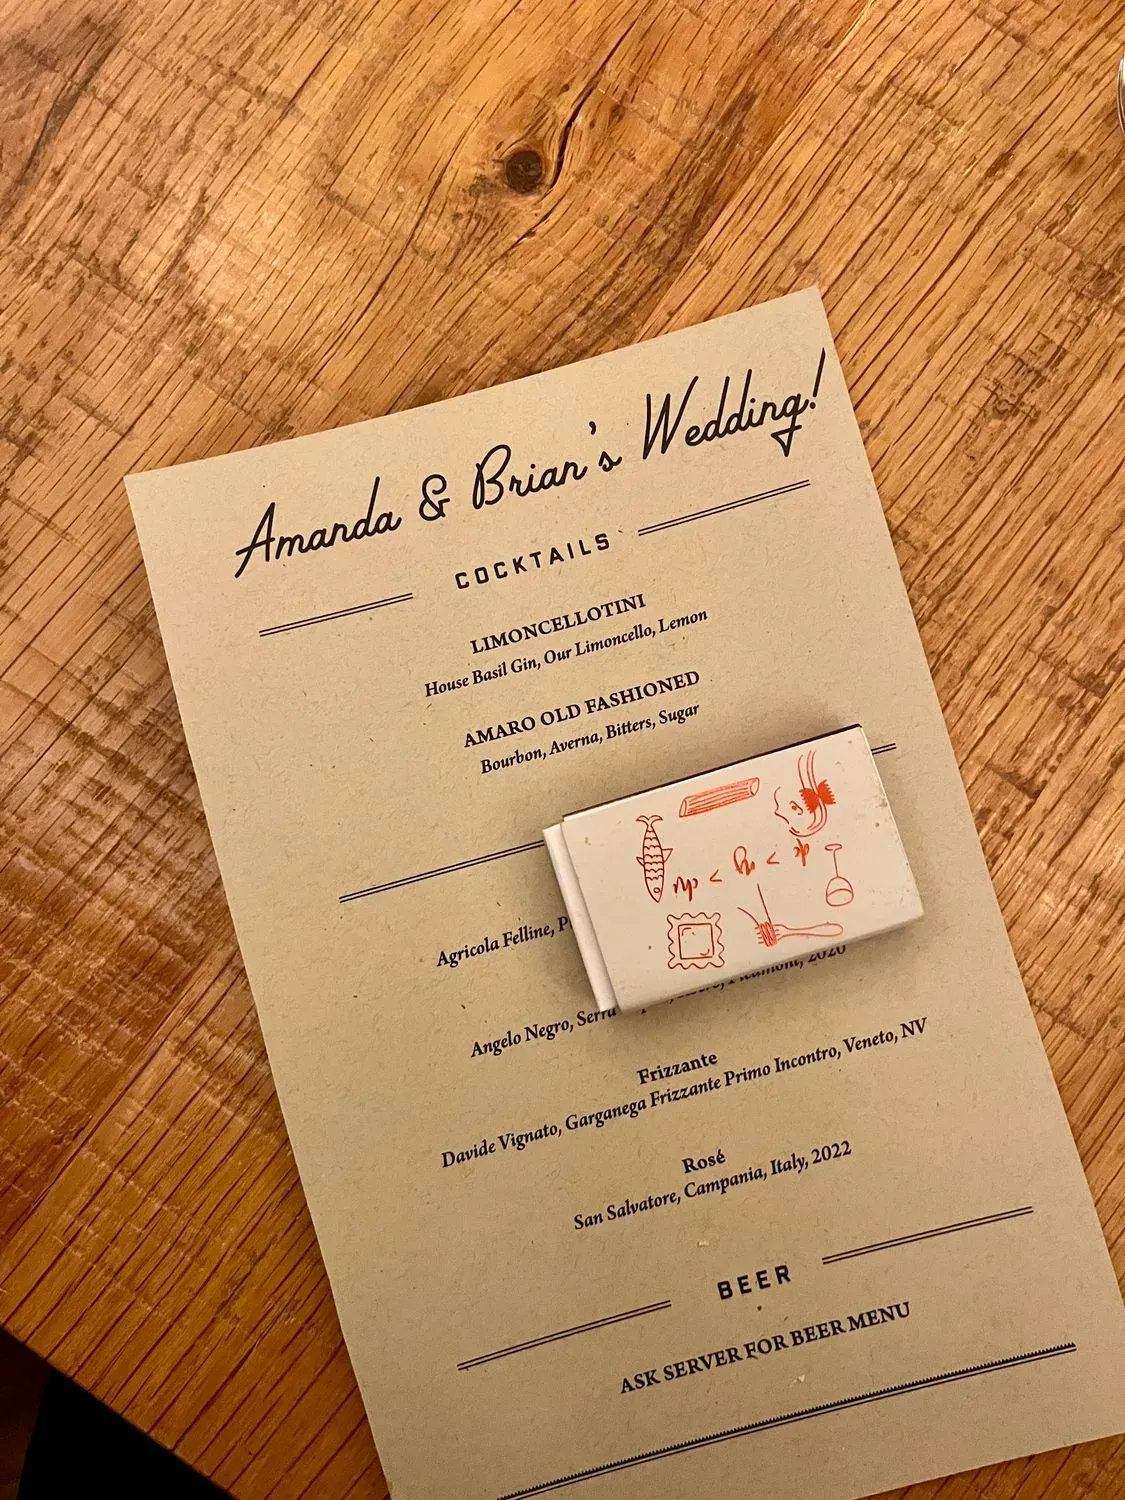 Amanda & Brian's Wedding!
COCKTAILS
LIMONCELLOTINI
House Basil Gin, Our Limoncello, Lemon
AMARO OLD FASHIONED
Bourbon, Averna, Bitters, Sugar
Agricola Felline,
Angelo Negro, Serra 2020
Frizzante
Davide Vignato, Garganega Frizzante Primo Incontro, Veneto, NV
Rosé
San Salvatore, Campania, Italy, 2022
BEER
ASK SERVER FOR BEER MENU